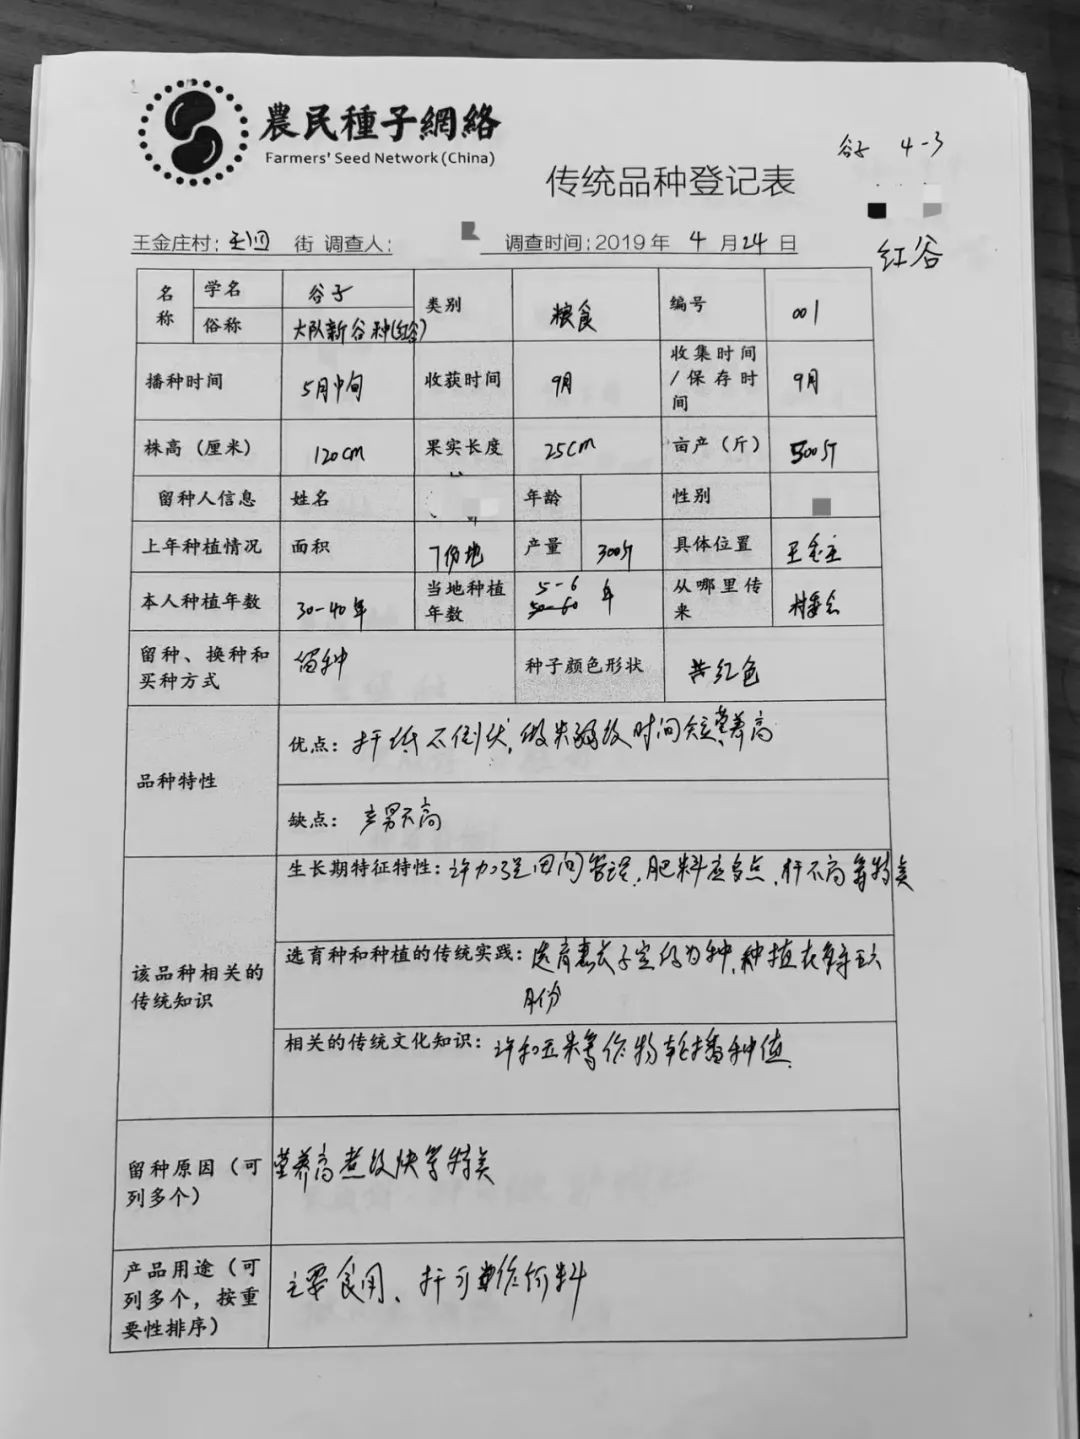 農民種子網絡
Farmers' Seed Network (China)
谷子 4-3
传统品种登记表
红谷
王金庄村: 街 调查人: 调查时间:2019年 4月24日
名称 学名 谷子 类别 粮食 编号 001
俗称 大队新谷种(红谷)
播种时间 5月中旬 收获时间 9月 收集时间/保存时间 9月
株高(厘米) 120cm 果实长度 25cm 亩产(斤) 500斤
留种人信息 姓名 年龄 性别
上年种植情况 面积 7份地 产量 300斤 具体位置 王金庄
本人种植年数 30-40年 当地种植年数 5-6 年 从哪里传来 村委会
留种、换种和买种方式 留种 种子颜色形状 黄红色
品种特性 优点: 杆 不倒伏, 做米 时间短营养高
缺点: 产男不高
该品种相关的传统知识 生长期特征特性: 许加强田间管理,肥料应多点,杆不高等特点
选育种和种植的传统实践: 选育 为种,种植在 五六
月份
相关的传统文化知识: 许和玉米等作物轮播种值.
留种原因(可列多个) 营养高煮饭快等特点
产品用途(可列多个,按重要性排序) 主要食用、杆可 作饲料